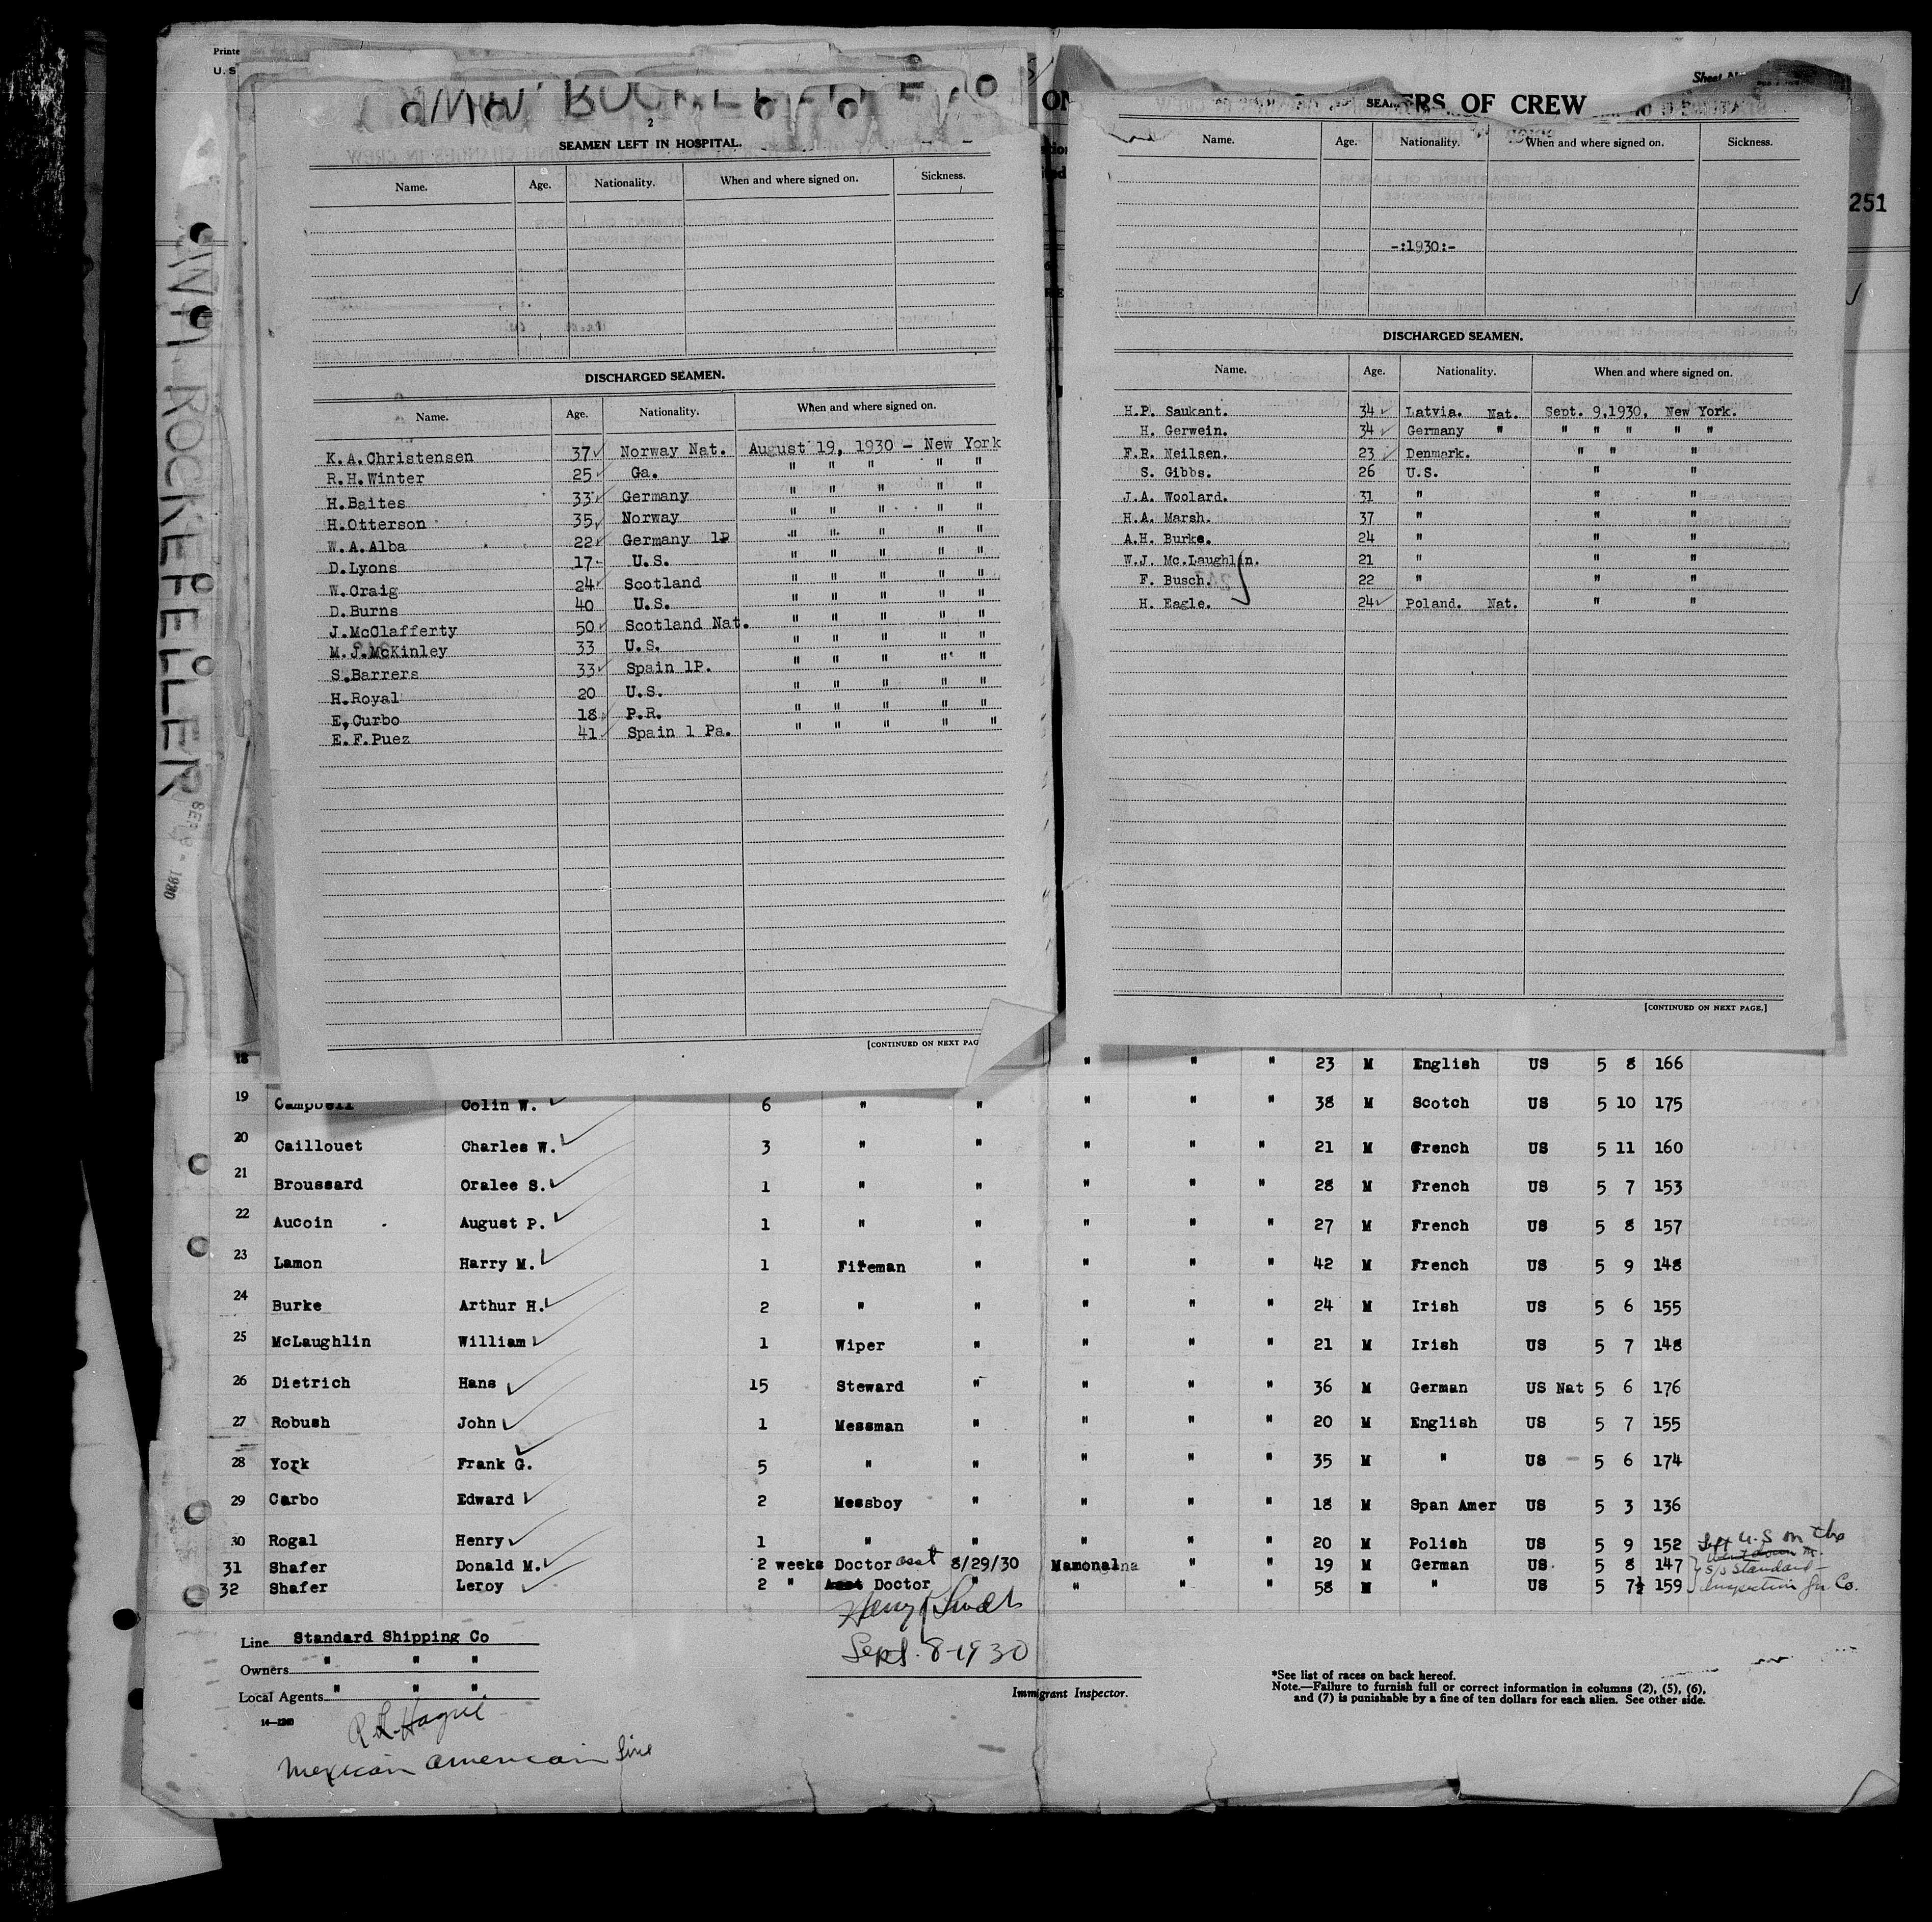 Printe
U. S
2
SEAMEN LEFT IN HOSPITAL.
Name. Age. Nationality. When and where signed on. Sickness.
DISCHARGED SEAMEN.
Name. Age. Nationality. When and where signed on.
K.A.Christensen 37 Norway Nat. August 19, 1930 - New York
R.H.Winter 25 Ga. " " " " "
H.Baites 33 Germany " " " " "
H.Otterson 35 Norway " " " " "
W.A.Alba 22 Germany 1P " " " " "
D.Lyons 17 U.S. " " " " "
W.Craig 24 Scotland " " " " "
D.Burns 40 U.S. " " " " "
J.McClafferty 50 Scotland Nat. " " " " "
M.J.McKinley 33 U.S. " " " " "
S.Barrers 33 Spain 1P. " " " " "
H.Royal 20 U.S. " " " " "
E,Curbo 18 P.R. " " " " "
E.F.Puez 41 Spain 1 Pa. " " " " "
[CONTINUED ON NEXT PAG
Sheet
SEAM
ERS OF CREW
Name. Age. Nationality. When and where signed on. Sickness.
251
-:1930:-
DISCHARGED SEAMEN.
Name. Age. Nationality. When and where signed on.
H.P. Saukant. 34 Latvia. Nat. Sept. 9,1930, New York.
H. Gerwein. 34 Germany " " " " " "
F.R. Neilsen. 23 Denmark. " " "
S. Gibbs. 26 U.S. " "
J.A. Woolard. 31 " " "
H.A. Marsh. 37 " " "
A.H. Burke. 24 " " "
W.J. Mc.Laughlin. 21 " " "
F. Busch. 22 " " "
H. Eagle. 24 Poland. Nat. " "
[CONTINUED ON NEXT PAGE.]
ROCKEFELLER
SEP 8 - 1930
18 " " " 23 M English US 5 8 166
19 Campbell Colin W. 6 " " " " " 38 M Scotch US 5 10 175
20 Caillouet Charles W. 3 " " " " " 21 M French US 5 11 160
21 Broussard Oralee S. 1 " " " " " 28 M French US 5 7 153
22 Aucoin August P. 1 " " " " " 27 M French US 5 8 157
23 Lamon Harry M. 1 Fireman " " " " 42 M French US 5 9 148
24 Burke Arthur H. 2 " " " " " 24 M Irish US 5 6 155
25 McLaughlin William 1 Wiper " " " " 21 M Irish US 5 7 148
26 Dietrich Hans 15 Steward " " " " 36 M German US Nat 5 6 176
27 Robush John 1 Messman " " " " 20 M English US 5 7 155
28 York Frank G. 5 " " " " " 35 M " US 5 6 174
29 Carbo Edward 2 Messboy " " " " 18 M Span Amer US 5 3 136
30 Rogal Henry 1 " " " " " 20 M Polish US 5 9 152 Left U.S on the
31 Shafer Donald M. 2 weeks Doctor asst 8/29/30 Mamonalna " " 19 M German US 5 8 147 S/S Standard
32 Shafer Leroy 2 " Asst Doctor " " " " 58 M " US 5 7½ 159 Co.
Sept. 8-1930
Immigrant Inspector.
Line Standard Shipping Co
Owners " " "
Local Agents " " "
14-1240
R.L. Hague
Mexican American Line
*See list of races on back hereof.
Note.—Failure to furnish full or correct information in columns (2), (5), (6),
and (7) is punishable by a fine of ten dollars for each alien. See other side.